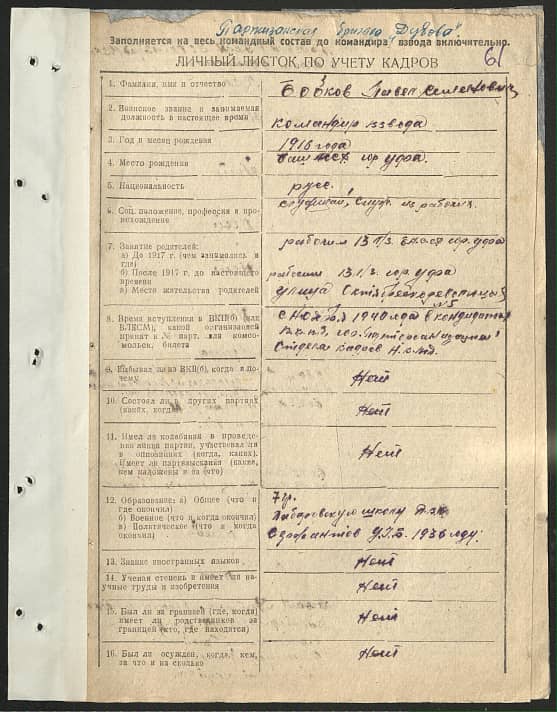 Партизанская бригада Дубова.
Заполняется на весь командный состав до командира взвода включительно.
ЛИЧНЫЙ ЛИСТОК ПО УЧЕТУ КАДРОВ
61
1. Фамилия, имя и отчество
Бобков Павел Семенович
2. Воинское звание и занимаемая
должность в настоящее время
командир взвода
3. Год и месяц рождения
1916 года
4. Место рождения
гор. Уфа.
5. Национальность
русс.
6. Соц. положение, профессия и про-
исхождение
служ. из рабочих
7. Занятие родителей:
а) До 1917 г. (чем занимались и
где)
б) После 1917 г. до настоящего
времени
в) Место жительства родителей
рабочим гор. Уфа
рабочим гор. Уфа
улица
8. Время вступления в ВКП(б) или
ВЛКСМ), какой организацией
принят и № парт. или комсо-
мольск. билета
с ноября 1940 года в кандидаты
отдела кадров
9. Выбывал ли из ВКП(б), когда и по-
чему
Нет
10. Состоял ли в других партиях
(каких, когда)
Нет
11. Имел ли колебания в проведе-
нии линии партии, участвовал ли
в оппозициях (когда, каких).
Имеет ли партвзыскания (какие,
кем наложены и за что)
Нет
12. Образование: а) Общее (что и
где окончил)
б) Военное (что и когда окончил)
в) Политическое (что и когда
окончил)
7 гр.
Хабаровскую школу
1936 году.
13. Знание иностранных языков
Нет
14. Ученая степень и имеет ли на-
учные труды и изобретения
Нет
15. Был ли за границей (где, когда)
имеет ли родственников за
границей (кто, где находятся)
Нет
16. Был ли осужден, когда, кем,
за что и на сколько
Нет